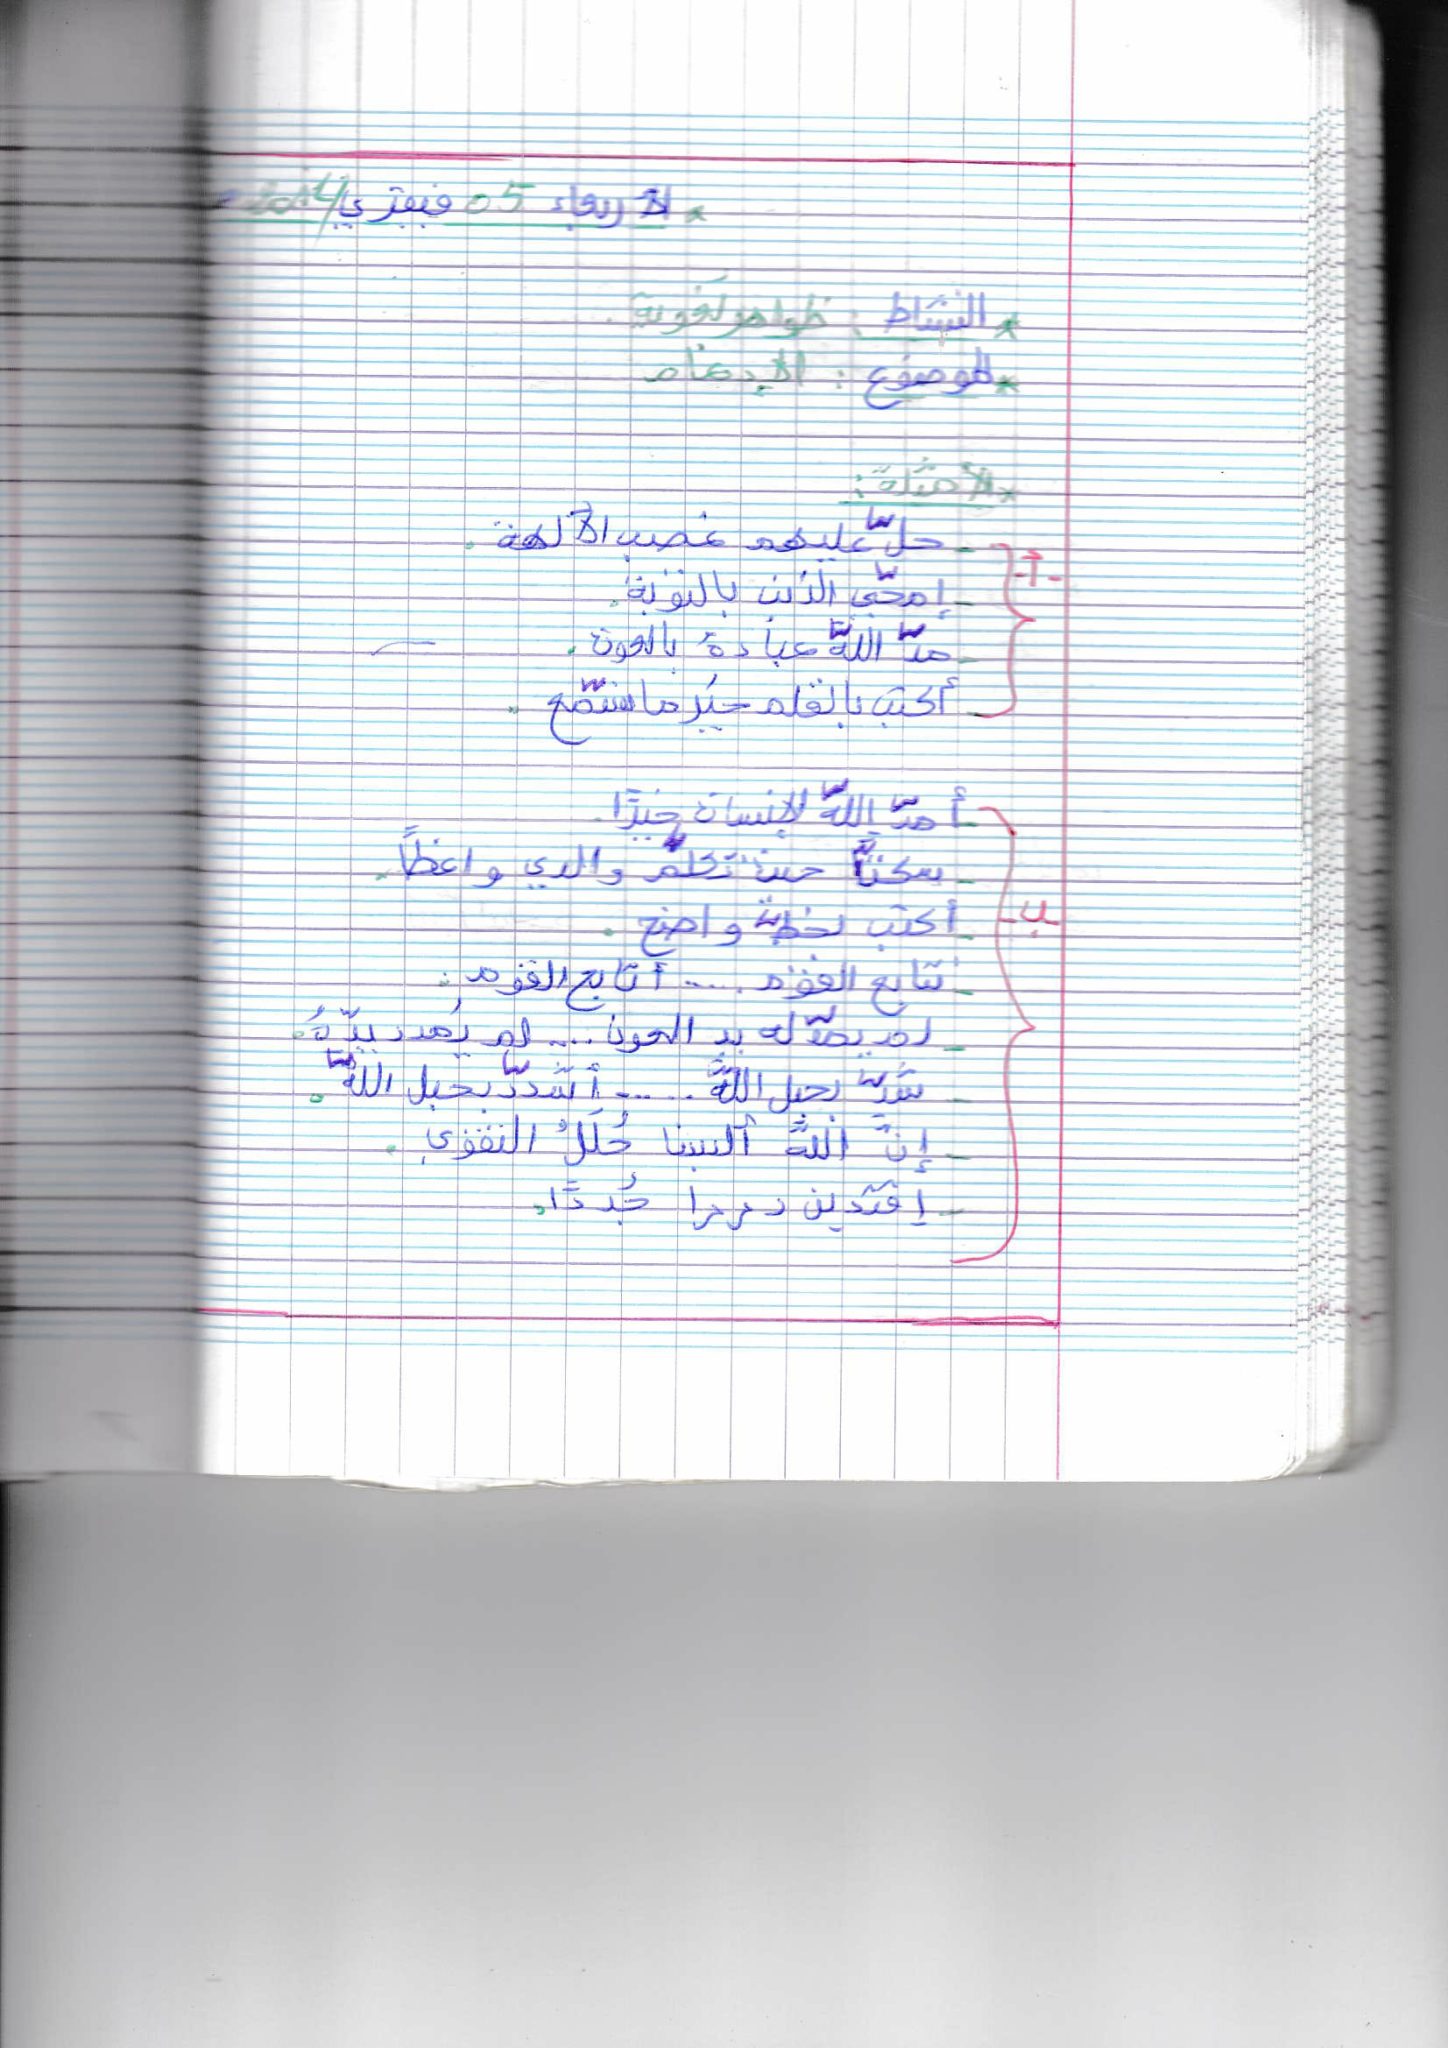 * الأربعاء 05 فيفري 2014
* النشاط : ظواهر لغوية.
* الموضوع : الإدغام
* الأمثلة:
- حلّ عليهم غضب الآلهة.
-أ-
- إمحّى الذنب بالتوبة.
- مدّ اللّه عبادهُ بالعون.
- أكتب بالقلم حبُر ما
- أمدّ اللّه الإنسان خيرًا.
- سكتنّا حين تكلّم والدي واعظاً.
-ب-
- أكتب بخطّ واضح.
- نتابع القوْم .... أتابع القوم.
- لم يمدّ له يد العون... لم يُمدد يدّهُ.
- شدّ بحبل اللّه ..... أشددّ بحبل اللّه.
- إنّ اللّه ألبسنا حُلَلُ التقوى.
- إقتدين جُددًا.